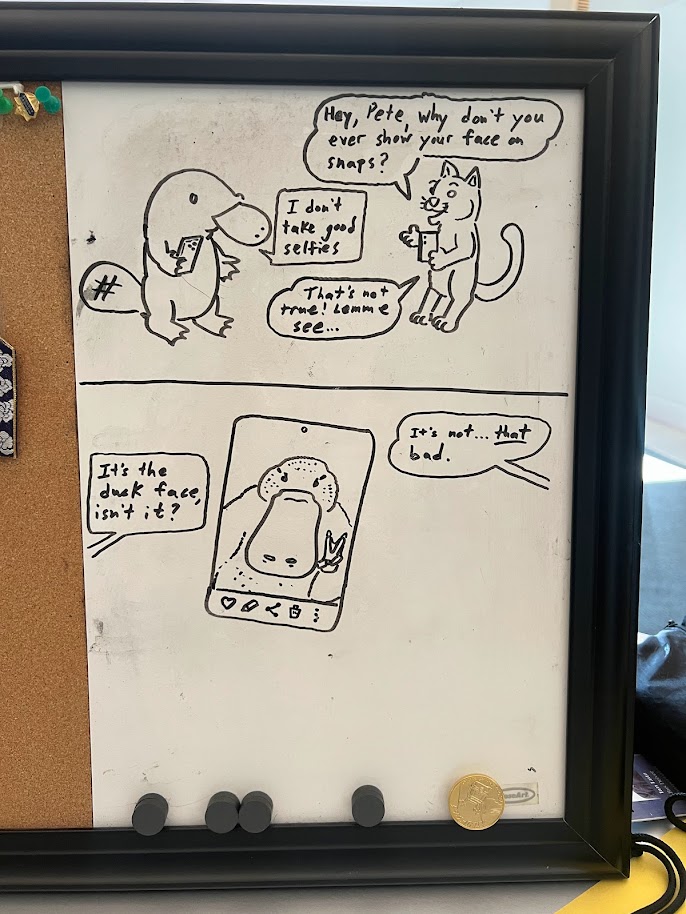 Hey, Pete, why don't you
ever show your face on
snaps?
I don't
take good
selfies
That's not
true! Lemme
see...
#
It's the
duck face,
isn't it?
It's not... that
bad.